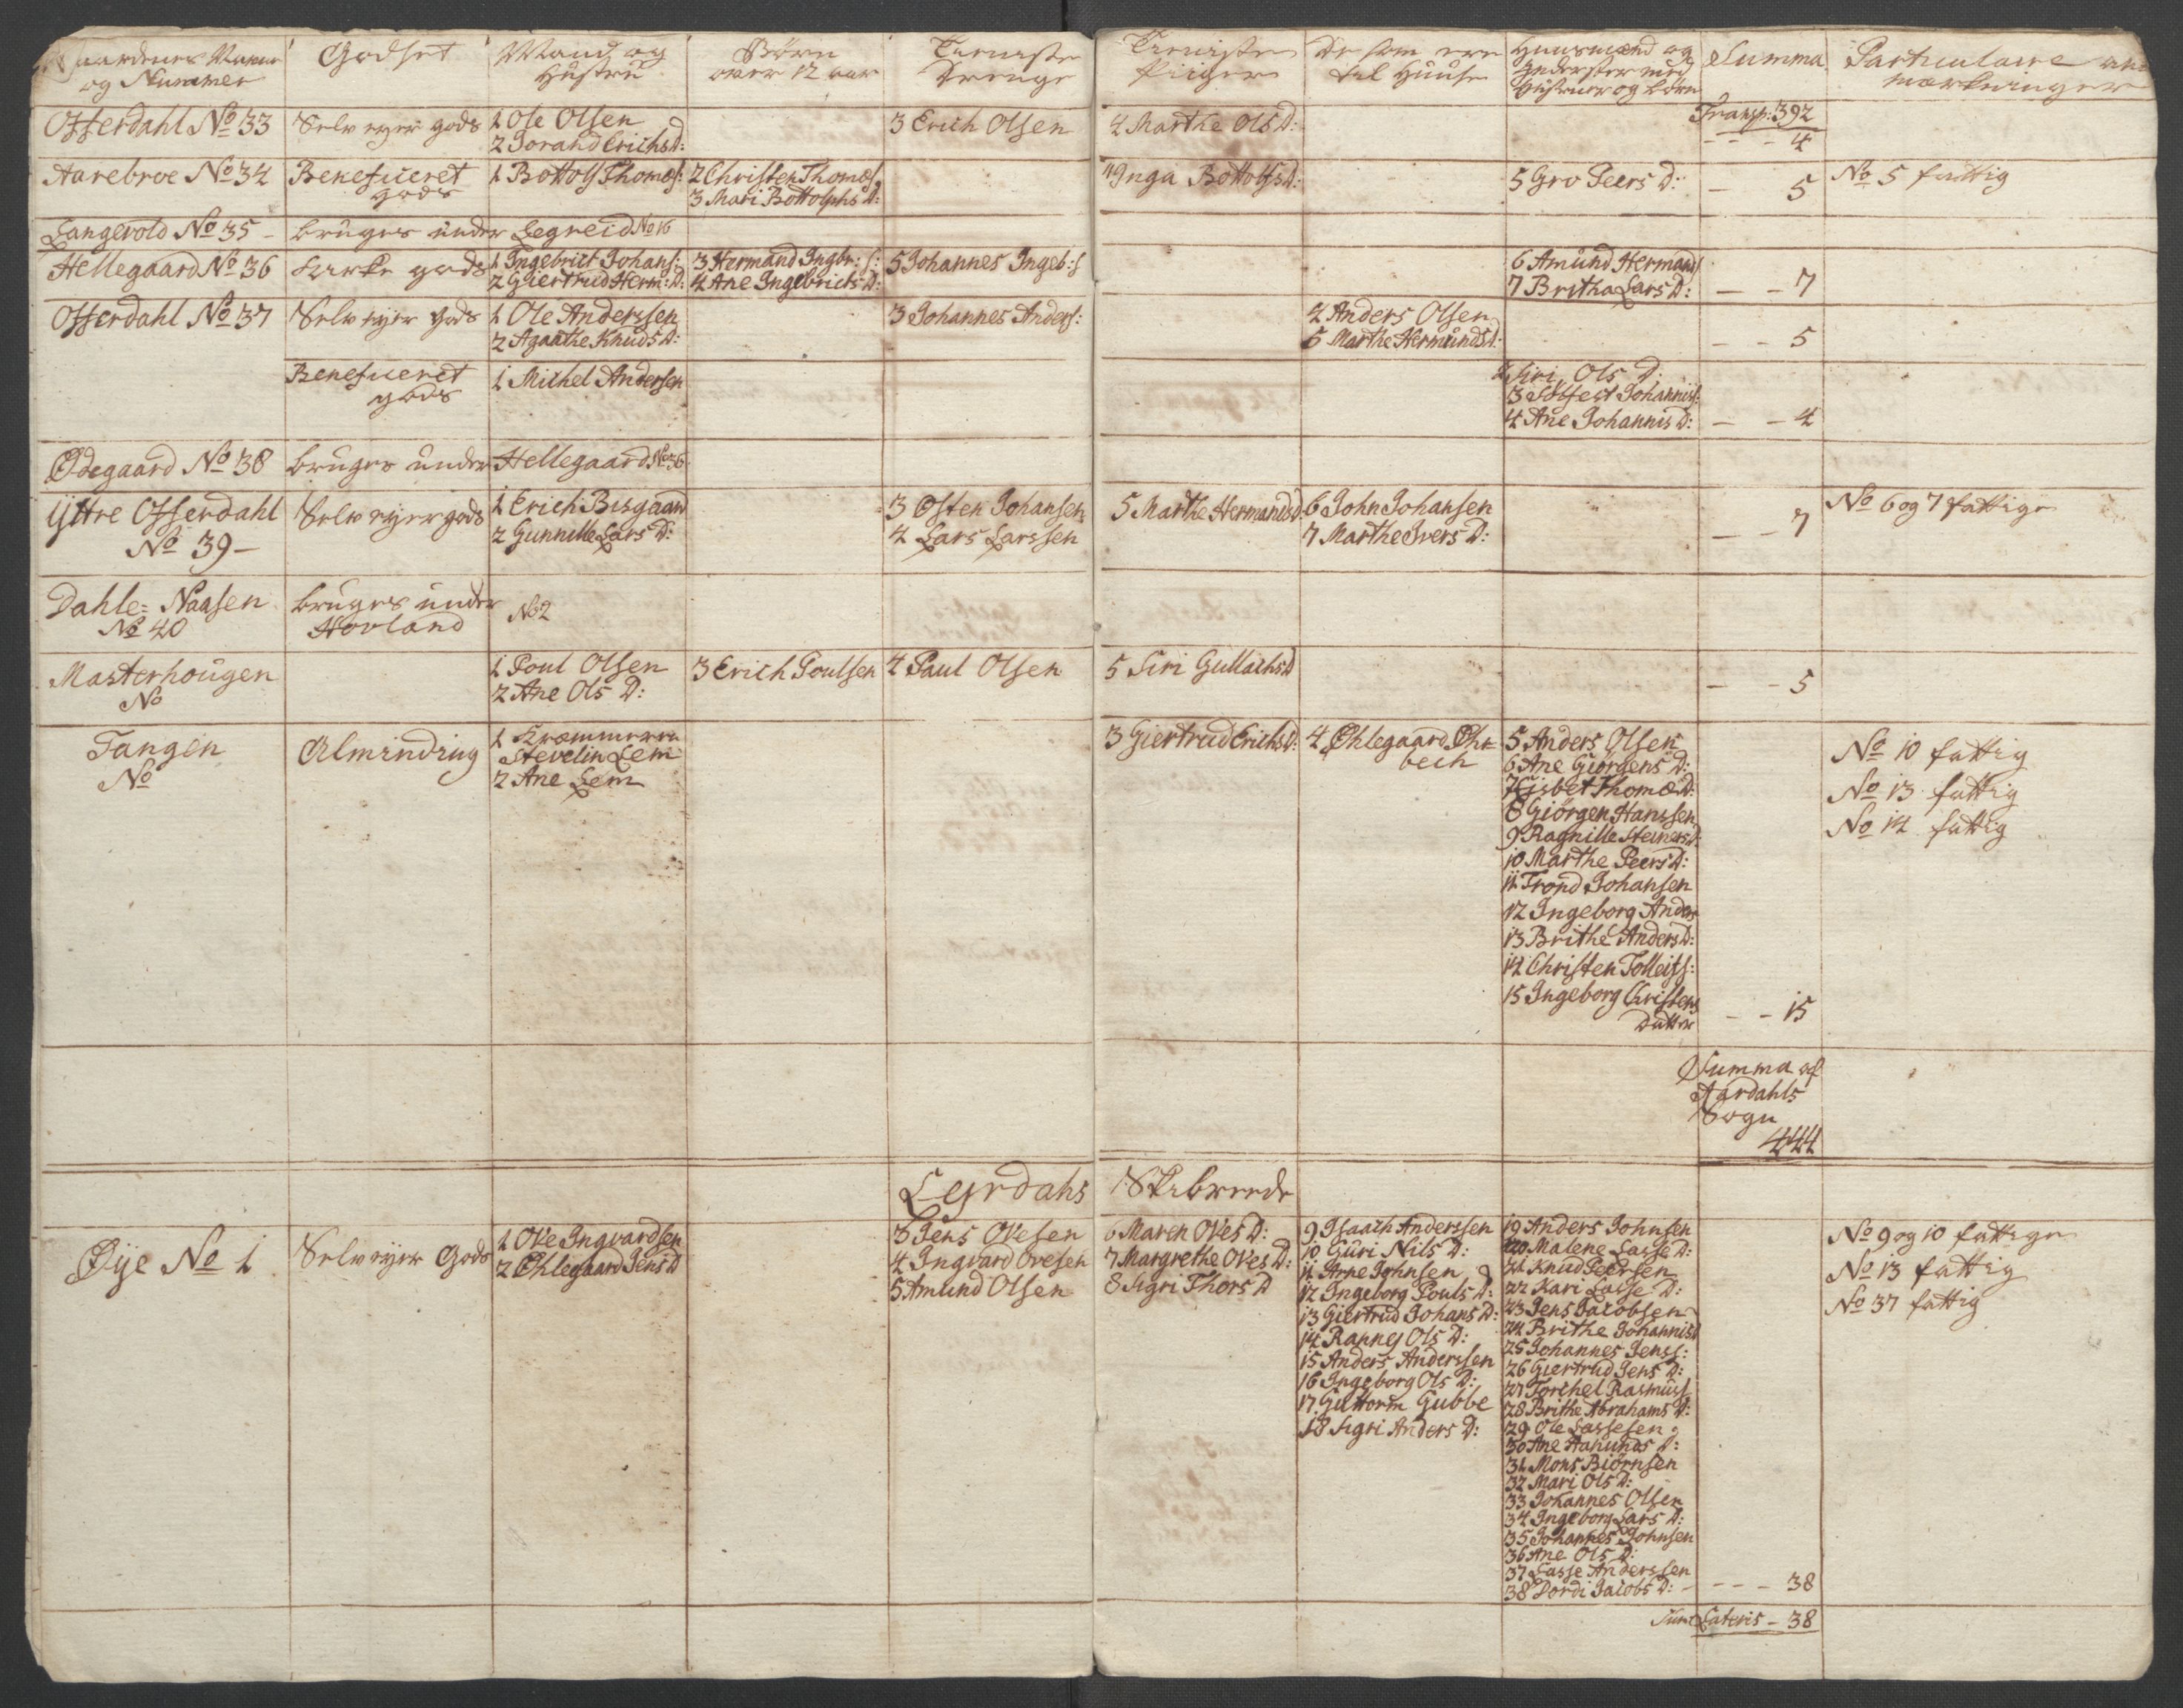 Gaardenes Nafne og Nummer
Godset
Mand og Hustru
Børn over 12 aar
Tieneste Drenge
Tieniste Piiger
De som ere til Huuse
Huusmænd og Inderster med Hustruer og børn
Summa
Particulaire anmærkninger
Offerdahl No 33
Selv eyer gods
1 Ole Olsen
2 Jorand Erichs D:
3 Erich Olsen
4 Marthe Ols D:
Transp: 392
- - - 4
Aarebroe No 34
Beneficeret gods
1 Bottolf Thomæs:
2 Christen Thomæs
3 Mari Bottolphs D:
4 Inga Bottolfs D:
5 Gro Peers D:
- 5
No 5 fattig
Langevold No 35 -
bruges under Legreid No 16
Hellegaard No 36
Kirke gods
1 Ingebrict Johans:
2 Giertrud Herm: D:
3 Hermand Ingbr: s:
4 Ane Ingebricts D:
5 Johannes Ingeb: s
6 Amund Hermans
7 Britha Lars D:
- - 7
Offerdahl No 37
Selv eyer gods
1 Ole Anderssen
2 Agaathe Knuds D:
3 Johannes Anders:
4 Anders Olsen
5 Marthe Hermunds D:
- - 5
Beneficeret gods
1 Michel Andersen
2 Siri Ols D:
3 Sølfest Johannis:
4 Ane Johannis D:
- - 4
Ødegaard No 38
bruges under Hellegaard No 36
Yttre Offerdahl
No 39 -
Selv eyer gods
1 Erich Bisgaard
2 Gunnille Lars D:
3 Østen Johansen
4 Lars Larssen
5 Marthe Hermands D
6 John Johansen
7 Marthe Ivers D:
- - 7
No 6 og 7 fattige
Dahle= Naasen
No 40
bruges under
Hovland No 2
Masterhougen
No
1 Poul Olsen
2 Ane Ols D:
3 Erich Poulsen
4 Paul Olsen
5 Siri Gullachs D
- - 5
Tangen
No
Alminding
1 Kræmmeren
Stevelin Lem
2 Ane Lem
3 Giertrud Erichs D:
4 Øhlegaard Ohr=
bech
5 Anders Olsen
6 Ane Giørgens D:
7 Lisbet Thomæ D:
8 Giørgen Hanssen
9 Ragnille Steners D:
10 Marthe Peers D:
11 Trond Johansen
12 Ingeborg Anders
13 Brithe Anders D:
14 Christen Tolleifs:
15 Ingeborg Christens
Datter
- - 15
No 10 fattig
No 13 fattig
No 14 fattig
Summa af
Aardahls
Sogn
444
Leyrdahs Skibrede
Øye No 1
Selv eyer Gods
1 Ove Ingvardsen
2 Øhlegaard Jens D
3 Jens Ovesen
4 Ingvard Ovesen
5 Amund Olsen
6 Maren Oves D:
7 Margrethe Oves D:
8 Sigri Thors D
9 Isaach Anderssen
10 Guri Nils D:
11 Arne Johnsen
12 Ingeborg Pouls D:
13 Giertrud Johans D:
14 Ranney Ols D:
15 Anders Anderssen
16 Ingeborg Ols D:
17 Guttorm Gubbe
18 Sigri Anders D:
19 Anders Johnsen
20 Malene Lasse D:
21 Knud Peersen
22 Kari Lasse D:
23 Jens Jacobsen
24 Brithe Johannis D
25 Johannes Jenss:
26 Giertrud Jens D:
27 Torchel Rasmuss
28 Brithe Abrahams D:
29 Ole Lassesen
30 Ane Aamunds D:
31 Mons Biørnsen
32 Mari Ols D:
33 Johannes Olsen
34 Ingeborg Lars D:
35 Johannes Johnsen
36 Ane Ols D:
37 Lasse Anderssen
38 Dordi Jacobs D: -
- - - 38
No 9 og 10 fattige
No 13 fattig
No 37 fattig
Sum: Lateris - 38